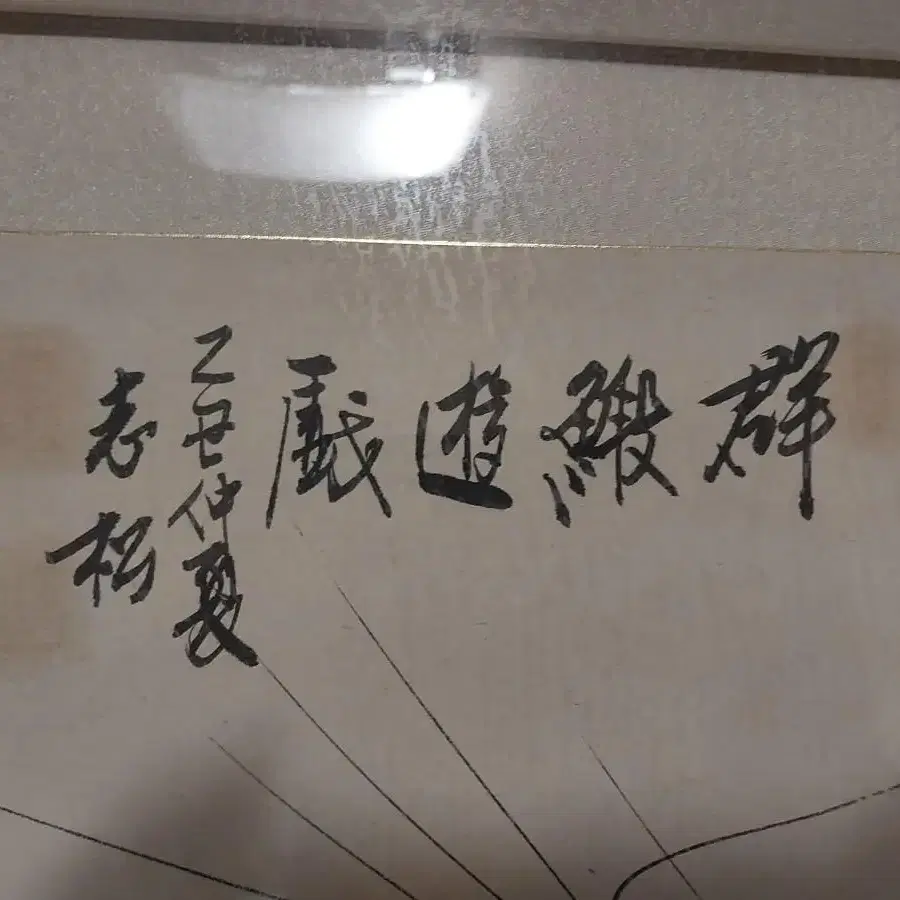 群鰕遊戱
乙丑仲夏
志松